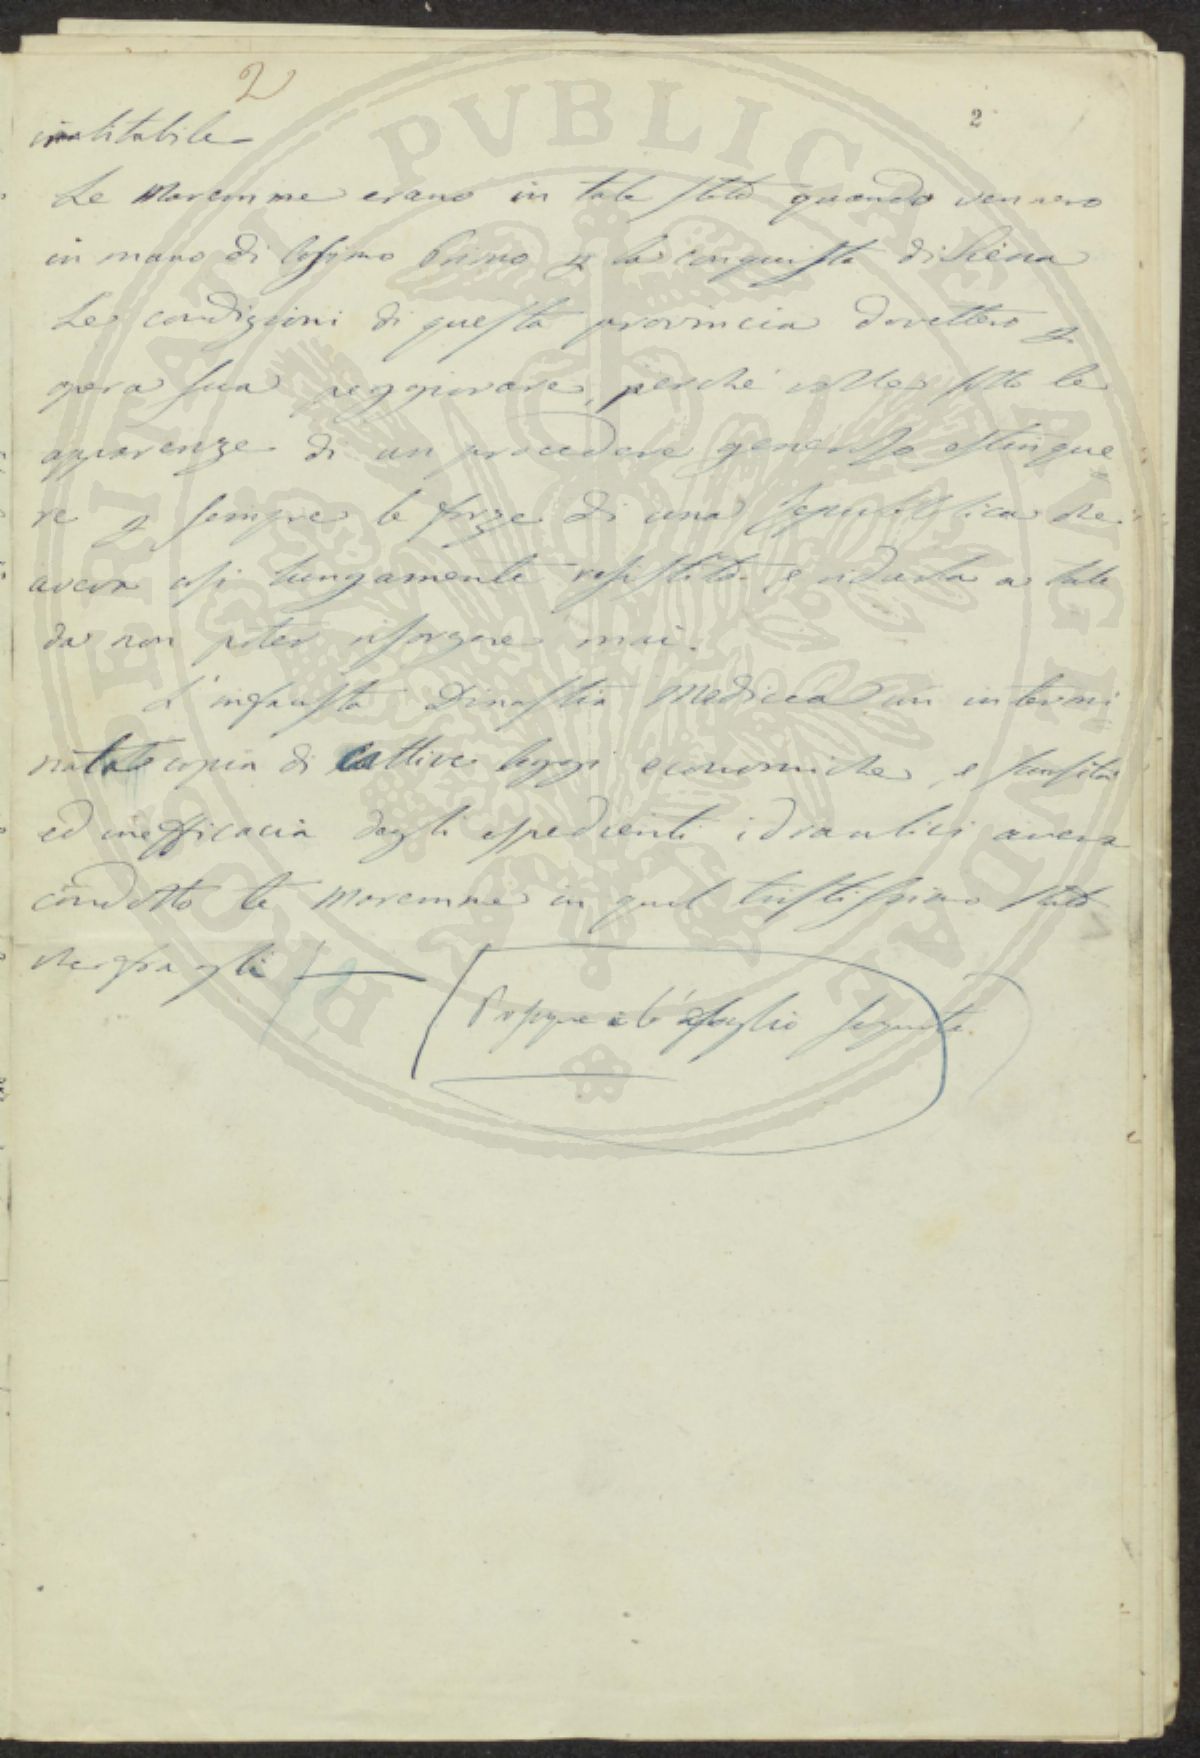 2
2
inabitabile
Le Maremme erano in tale stato quando vennero
in mano di Cosimo Primo p la conquista di Siena
Le condizioni di questa provincia dovettero p
opera sua peggiorare, perché volle sotto le
apparenze di un procedere generoso estingue
re p sempre le forze di una Repubblica che
aveva così lungamente resistito e ridurla a tale
da non poter risorgere mai.
L'infausta Dinastia Medicea un intermi
nata copia di cattive leggi economiche, e
ed inefficacia degli espedienti idraulici aveva
condotto le Maremme in quel tristissimo stato
foglio seguente
PVBLICAE